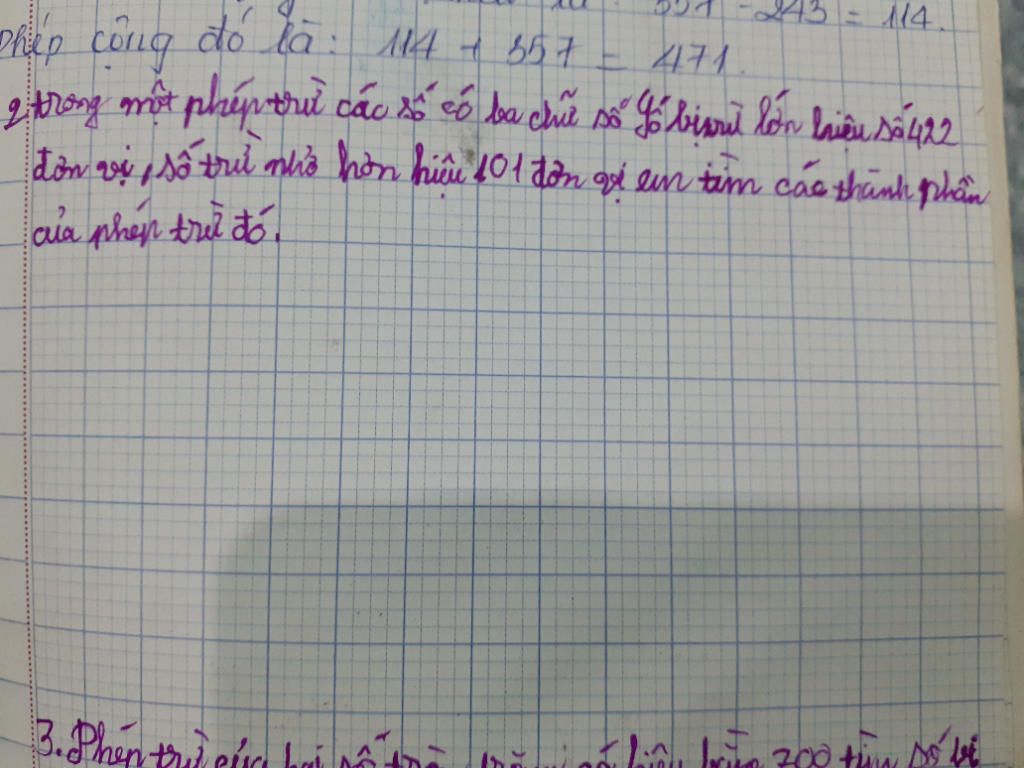 357 - 243 = 114.
Phép cộng đó là: 114 + 357 = 471.
2. trong một phép trừ các số có ba chữ số số bị trừ lớn hiệu số 422
đơn vị, số trừ nhỏ hơn hiệu 101 đơn vị em tìm các thành phần
của phép trừ đó.
3. Phép trừ của hai số trừ hiệu bằng 200 tìm số bị